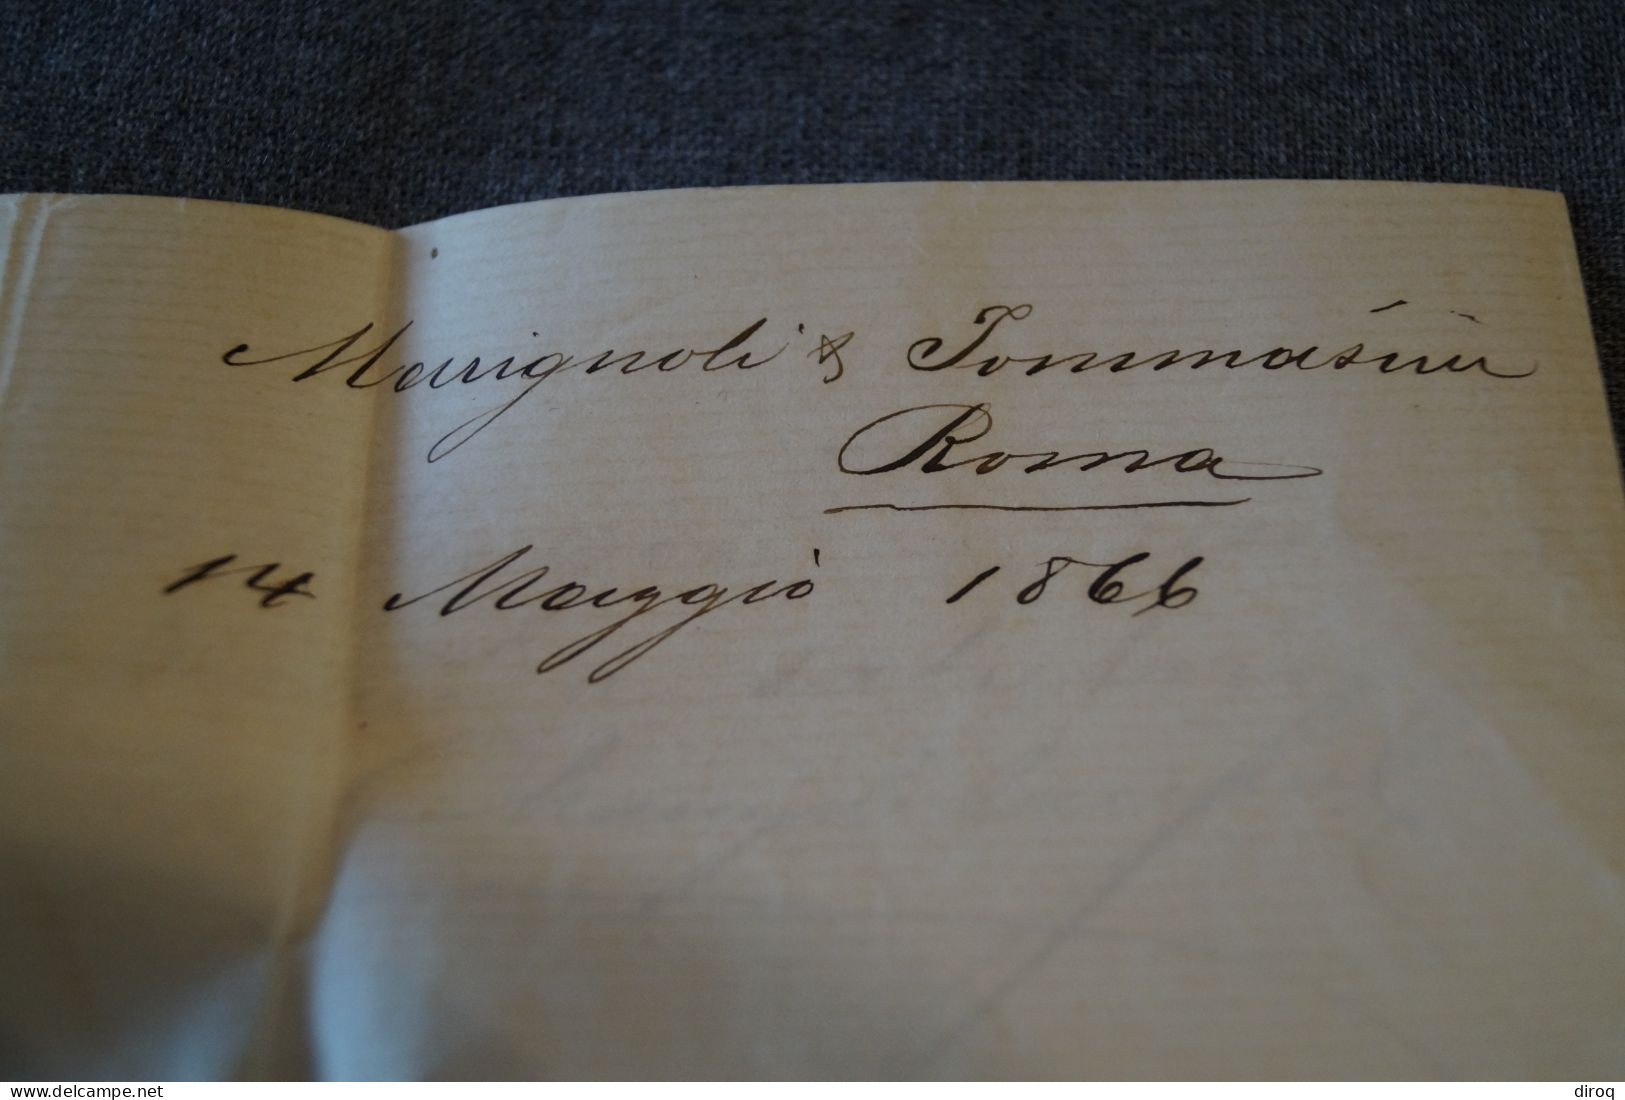 Marignoli & Tommasini
Roma
14 Maggio 1866
www.delcampe.net
diroq